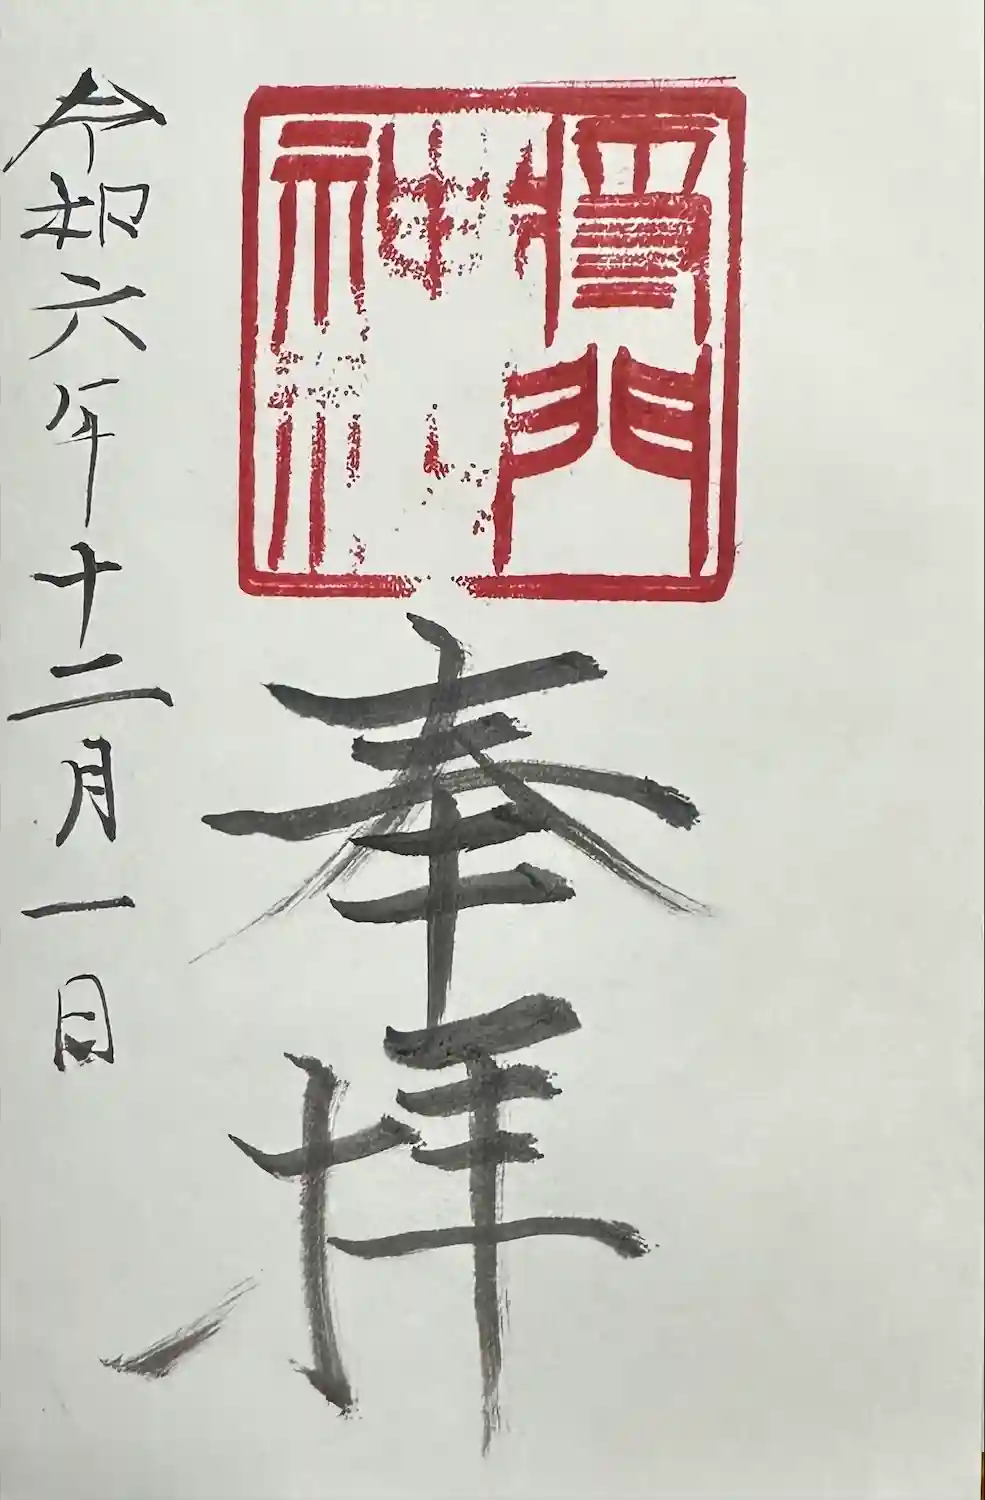 門
神社
奉拝
令和六年十二月一日